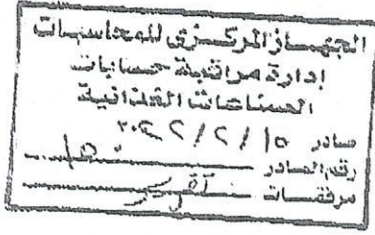 الجهاز المركزى للمحاسبات
إدارة مراقبة حسابات
الصناعات الغذائية
صادر ١٥ / ٢ / ٢٠٢٢
رقم الصادر
مرفقات